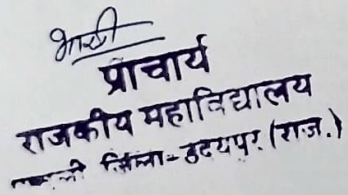 प्राचार्य
राजकीय महाविद्यालय
जिला - उदयपुर (राज.)